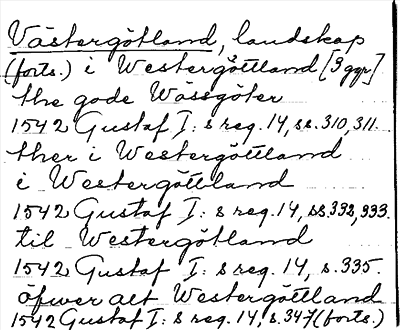 Västergötland, landskap
(forts.) i Westergöttland [3 ggr]
the gode Wässgöter
1542 Gustaf I: s reg. 14, ss. 310, 311.
ther i Westergöttland
i Westergöttland
1542 Gustaf I: s reg. 14, ss 332, 333.
til Westergötland
1542 Gustaf I: s reg. 14, s. 335.
öfwer alt Westergöttland
1542 Gustaf I: s reg. 14, s. 347 (forts.)